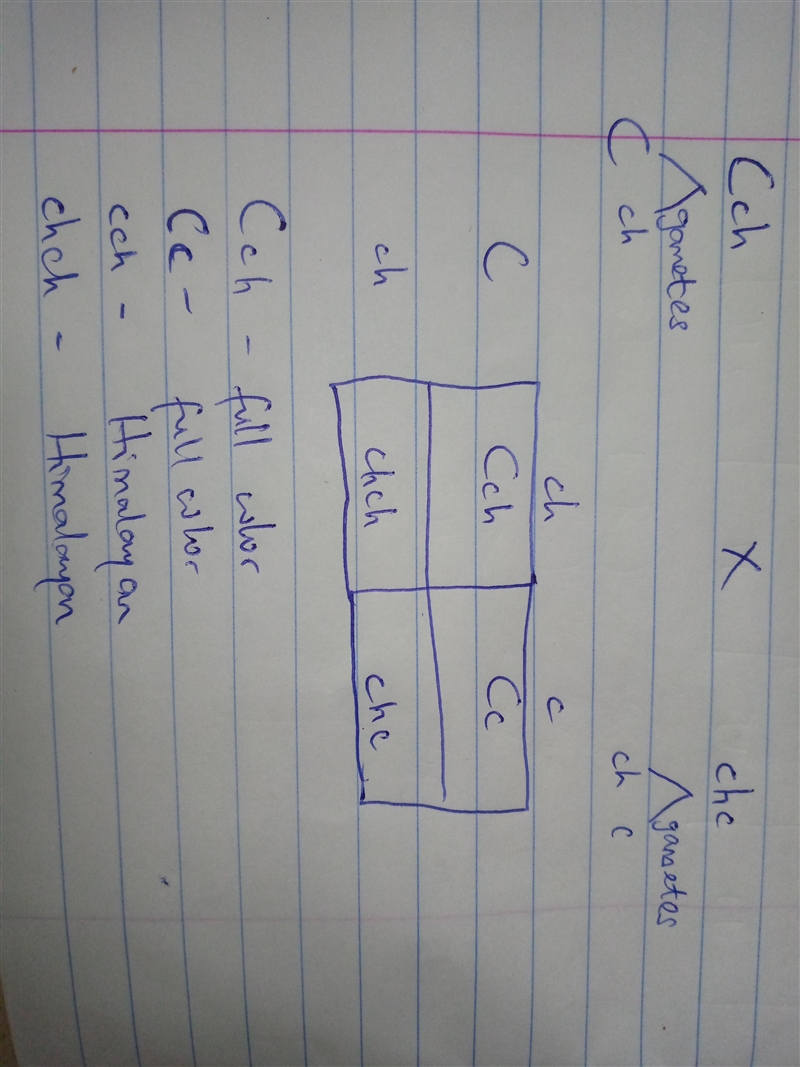 Cch X chc
gametes gametes
C ch ch c
ch c
C Cch Cc
ch chch chc
Cch - full color
Cc - full color
cch - Himalayan
chch - Himalayan